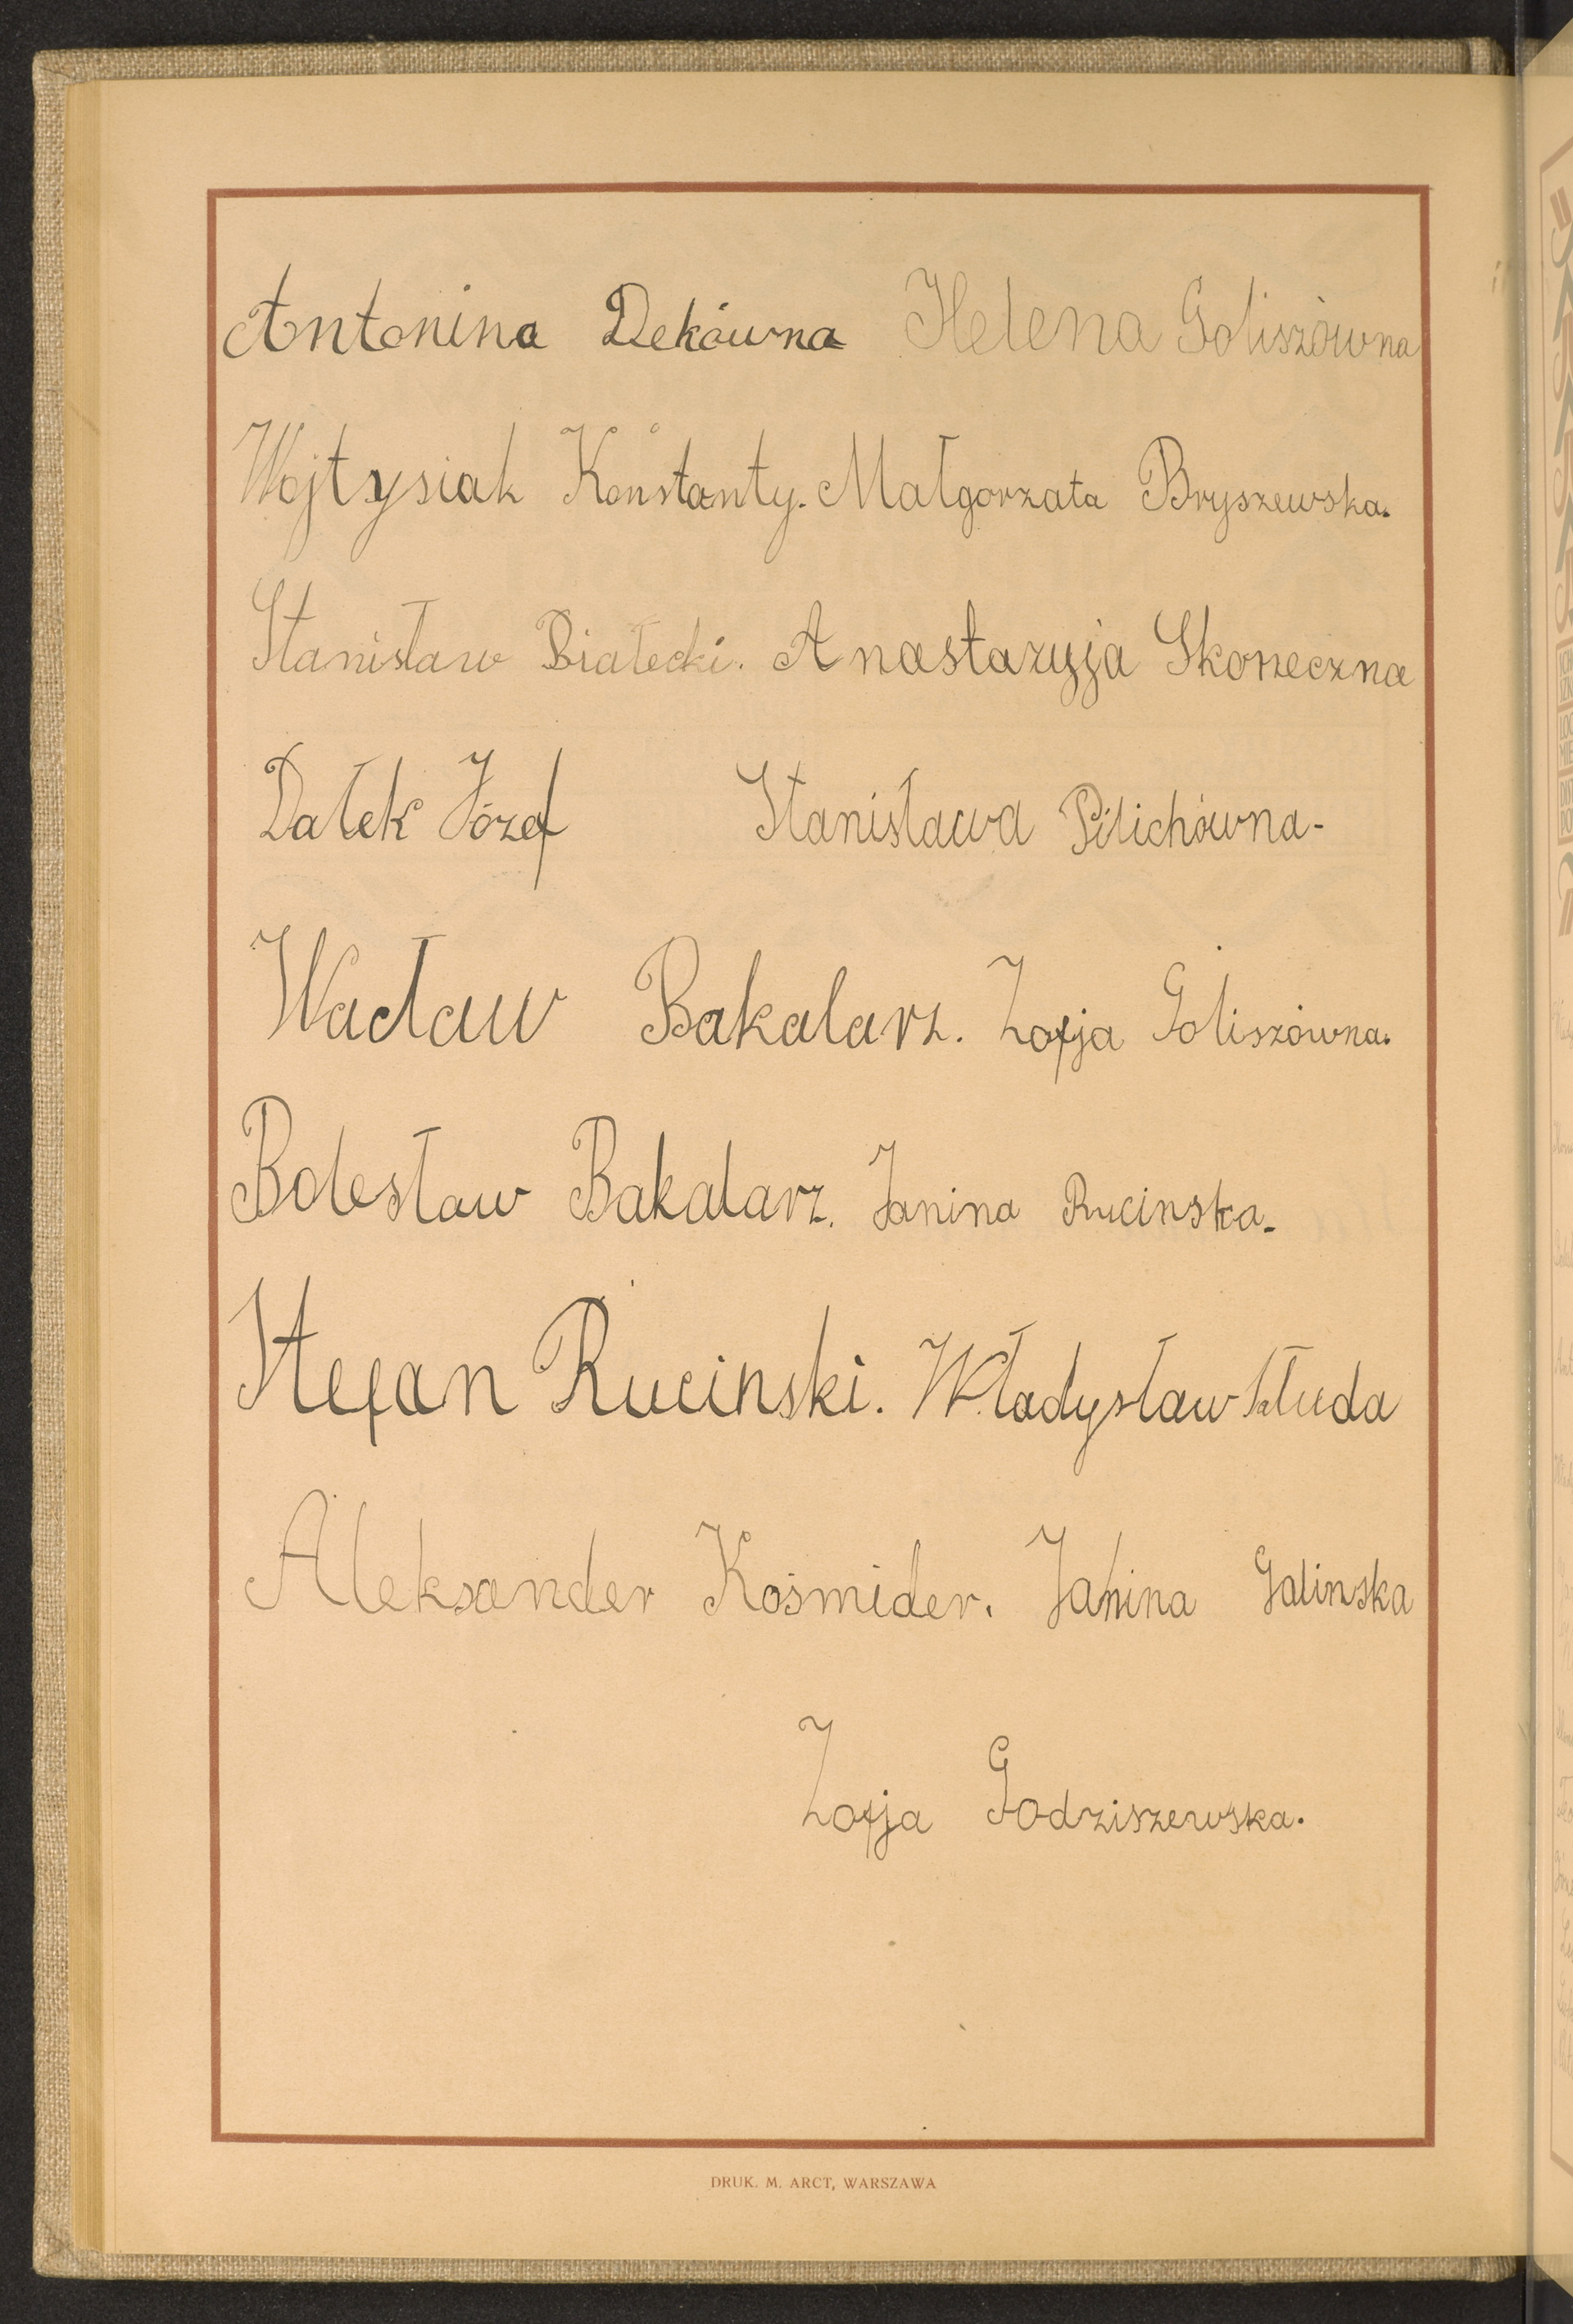 Antonina Dekówna Helena Goliszówna
Wojtysiak Konstanty. Małgorzata Bryszewska.
Stanisław Białecki. Anastazyja Skoneczna
Dałek Józef Stanisława Pilichówna-
Wacław Bakalarz. Zofja Goliszówna.
Bolesław Bakalarz. Janina Rucinska.
Stefan Rucinski. Władysław
Aleksander Kośmider. Janina Galinska
Zofja Godziszewska.
DRUK. M. ARCT, WARSZAWA